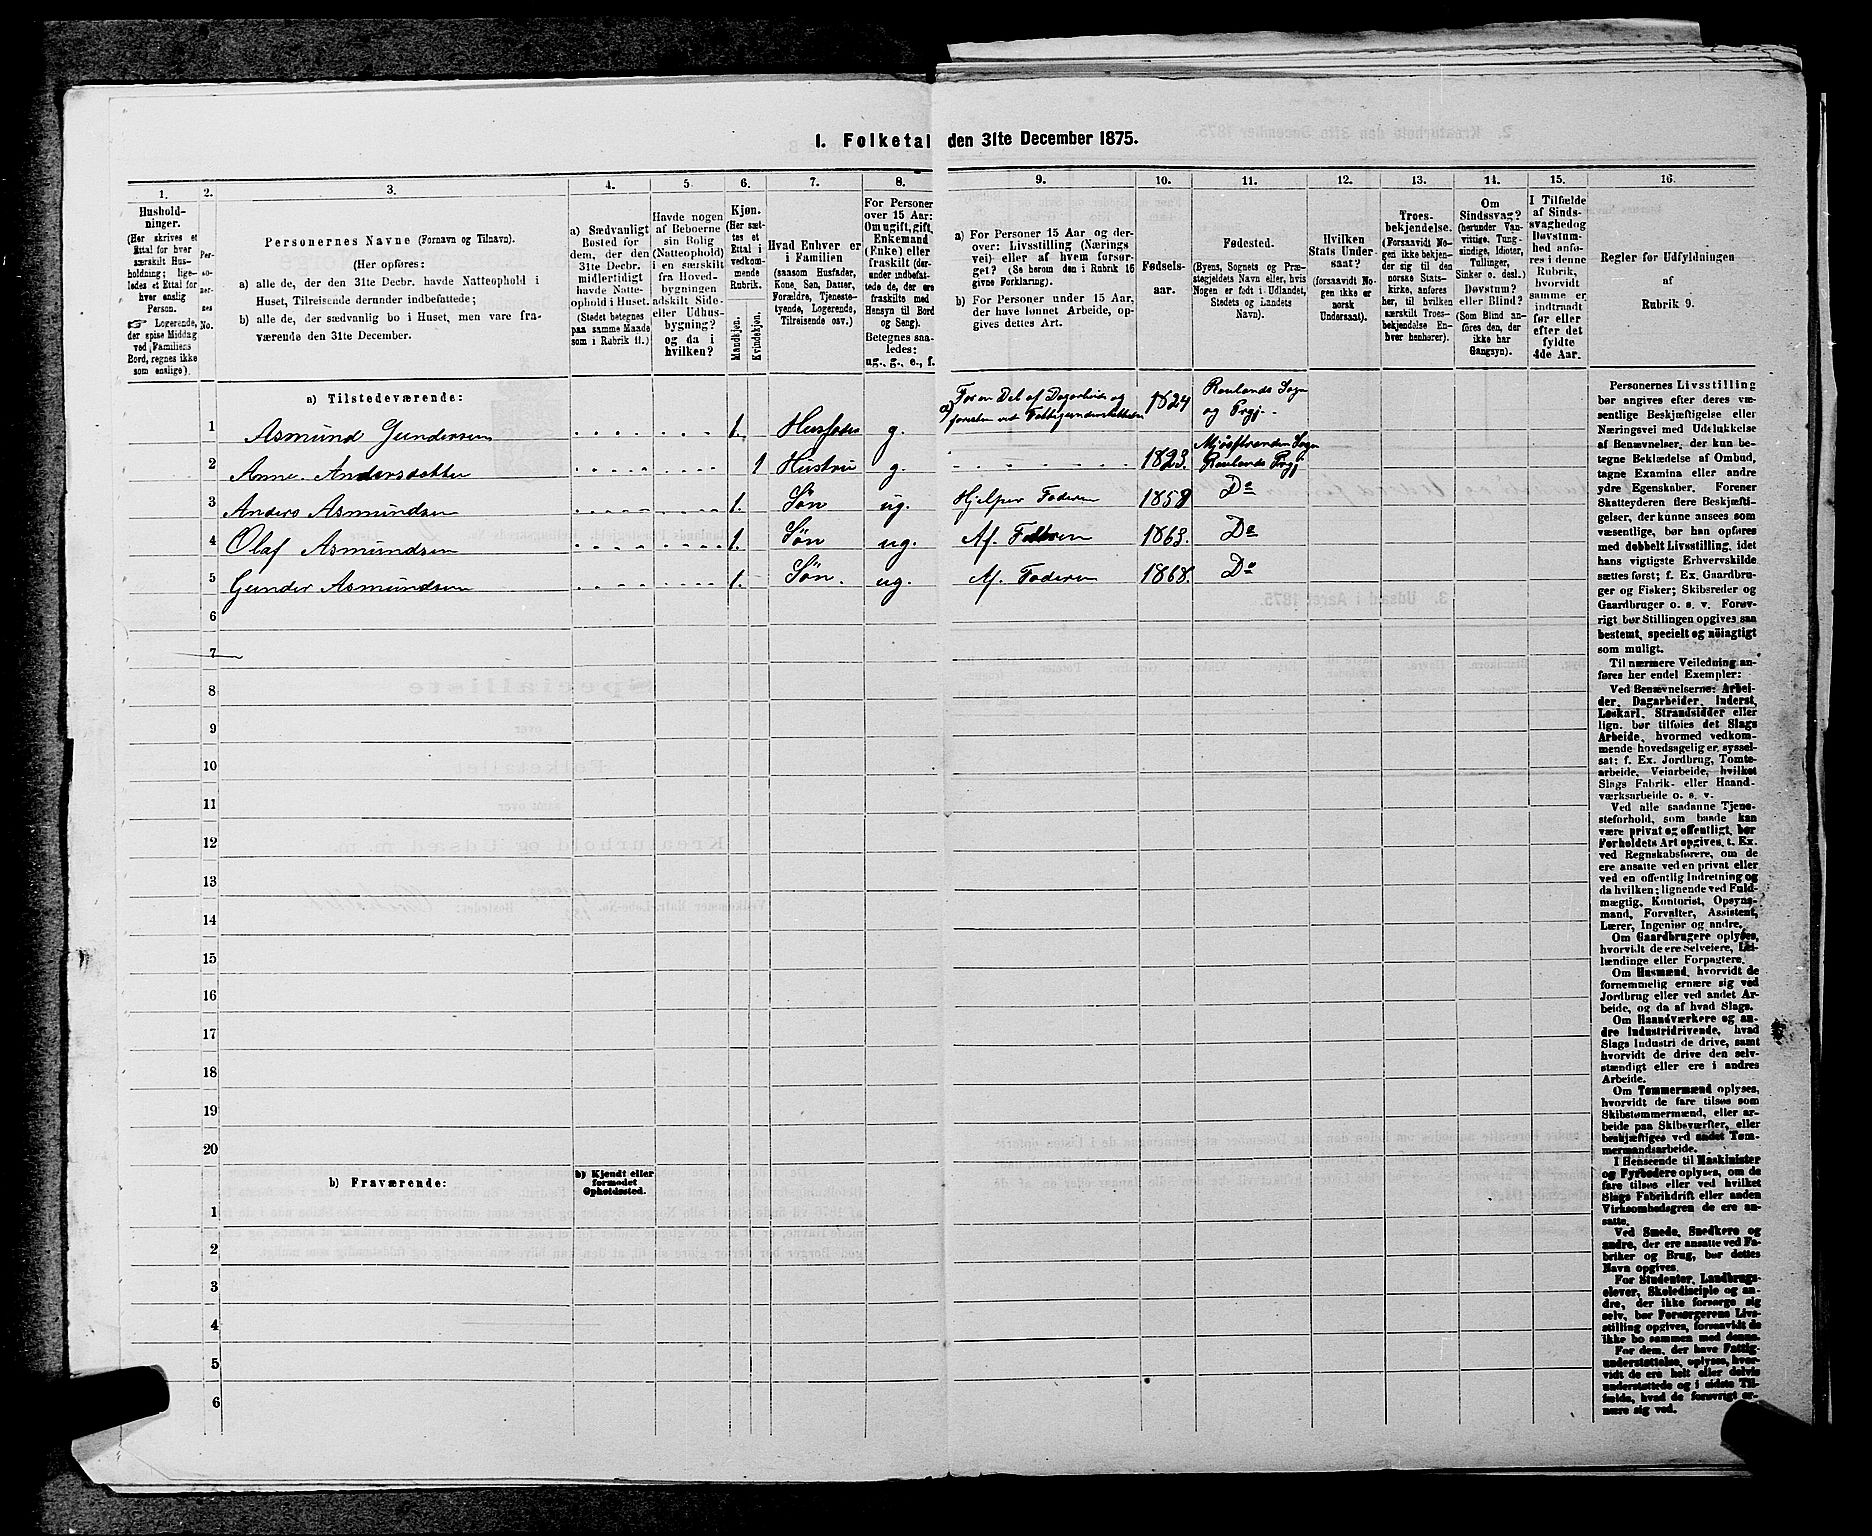 1. Folketal den 31te December 1875.
1. 2. 3. 4. 5 6. 7. 8. 9. 10. 11. 12. 13. 14. 15. 16.
Hushold-
ninger.
(Her skrives et
Ettal for hver
særskilt Hus-
holdning; lige-
ledes et Ettal for
hver enslig
Person.
☞ Logerende,
der spise Middag
ved Familiens
Bord, regnes ikke
som enslige).
Per-
so-
ner-
nes
No.
Personernes Navne (Fornavn og Tilnavn).
(Her opføres:
a) alle de, der den 31te Decbr. havde Natteophold i
Huset, Tilreisende derunder indbefattede;
b) alle de, der sædvanlig bo i Huset, men vare fra-
værende den 31te December.
a) Sædvanligt
Bosted for
dem, der den
31te Decbr.
midlertidigt
havde Natte-
ophold i Huset.
(Stedet betegnes
paa samme Maade
som i Rubrik 11.)
Havde nogen
af Beboerne
sin Bolig
(Natteophold)
i en særskilt
fra Hoved-
bygningen
adskilt Side-
eller Udhus-
bygning?
og da i
hvilken?
Kjøn.
(Her sæt-
tes et
Ettal i
vedkom-
mende
Rubrik.
Mandkjøn.
Kvindekjøn.
Hvad Enhver er
i Familien
(saasom Husfader,
Kone, Søn, Datter,
Forældre, Tjeneste-
tyende, Logerende,
Tilreisende osv.)
For Personer
over 15 Aar:
Om ugift, gift,
Enkemand
(Enke) eller
fraskilt (der-
under indbefat-
tede de, der ere
fraskilte med
Hensyn til Bord
og Seng).
Betegnes saa-
ledes:
ug., g., e., f.
a) For Personer 15 Aar og der-
over: Livsstilling (Nærings
vei) eller af hvem forsør-
get? (Se herom den i Rubrik 16
givne Forklaring).
b) For Personer under 15 Aar,
der have lønnet Arbeide, op-
gives dettes Art.
Fødsels-
aar.
Fødested.
(Byens, Sognets og Præ-
stegjeldets Navn eller, hvis
Nogen er født i Udlandet,
Stedets og Landets
Navn).
Hvilken
Stats Under-
saat?
(forsaavidt No-
gen ikke er
norsk
Undersaat).
Troes-
bekjendelse.
(Forsaavidt No-
gen ikke bekjen-
der sig til den
norske Stats-
kirke, anføres
her, til hvilken
særskilt Troes-
bekjendelse En-
hver henhører).
Om
Sindssvag?
(herunder Van-
vittige, Tung-
sindige, Idioter,
Tullinger,
Sinker o. desl.)
Døvstum?
eller Blind?
(Som Blind an-
føres den, der
ikke har
Gangsyn).
I Tilfælde
af Sinds-
svaghed og
Døvstum-
hed anfø-
res i denne
Rubrik,
hvorvidt
samme er
indtraadt
før eller
efter det
fyldte
4de Aar.
Regler for Udfyldningen
af
Rubrik 9.
a) Tilstedeværende:
1 Asmund Gundersen 1. Husfader g. a) For en Del af Dagarbeide og
forresten ved Fattigunderstøttelsen 1824 Raulands Sogn
og Prgj.
2 Anne Andersdatter 1 Hustru g. 1823. Mjøsstranden Sogn
Raulands Prgj
3 Anders Asmundsen 1. Søn ug. Hjelper Faderen 1858 Do
4 Olaf Asmundsen 1. Søn ug. Af. Faderen 1863. Do
5 Gunder Asmundsen 1. Søn. ug. Af. Faderen 1868. Do
6
7
8
9
10
11
12
13
14
15
16
17
18
19
20
b) Fraværende:
b) Kjendt eller
formodet
Opholdssted.
1
2
3
4
5
6
Personernes Livsstilling
bør angives efter deres væ-
sentlige Beskjæftigelse eller
Næringsvei med Udelukkelse
af Benævnelser, der kun be-
tegne Beklædelse af Ombud,
tagne Examina eller andre
ydre Egenskaber. Forener
Skatteyderen flere Beskjæfti-
gelser, der kunne ansees som
væsentlige, bør han opføres
med dobbelt Livsstilling, idet
hans vigtigste Erhvervskilde
sættes først; f. Ex. Gaardbru-
ger og Fisker; Skibsreder og
Gaardbruger o. s. v. Forøv-
rigt bør Stillingen opgives saa
bestemt, specielt og nöiagtigt
som muligt.
Til nærmere Veiledning an-
føres her endel Exempler:
Ved Benævnelserne: Arbei-
der, Dagarbeider, Inderst,
Løskarl, Strandsidder eller
lign. bør tilføies det Slags
Arbeide, hvormed vedkom-
mende hovedsagelig er syssel-
sat; f. Ex. Jordbrug, Tomte-
arbeide, Veiarbeide, hvilket
Slags Fabrik- eller Haand-
værksarbeide o. s. v.
Ved alle saadanne Tjene-
steforhold, som baade kan
være privat og offentligt, bør
Forholdets Art opgives, t. Ex.
ved Regnskabsførere, om de
ere ansatte ved en privat eller
ved en offentlig Indretning og
da hvilken; lignende ved Fuld-
mægtig, Kontorist, Opsyns-
mand, Forvalter, Assistent,
Lærer, Ingeniør og andre.
Om Gaardbrugere oplyses,
hvorvidt de ere Selveiere, Lei-
lændinge eller Forpagtere.
Om Husmænd, hvorvidt de
fornemmelig ernære sig ved
Jordbrug eller ved andet Ar-
beide, og da af hvad Slags.
Om Haandværkere og an-
dre Industridrivende, hvad
Slags Industri de drive, samt
hvorvidt de drive den selv-
stændigt eller ere i andres
Arbeide.
Om Tømmermænd oplyses,
hvorvidt de fare tilsøs som
Skibstømmermænd, eller ar-
beide paa Skibsværfter, eller
beskjæftiges ved andet Tøm-
mermandsarbeide.
I Henseende til Maskinister
og Fyrbødere oplyses, om de
fare tilsøs eller ved hvilket
Slags Fabrikdrift eller anden
Virksomhedsgren de ere an-
satte.
Ved Smede, Snedkere og
andre, der ere ansatte ved Fa-
briker og Brug, bør dettes
Navn opgives.
For Studenter, Landbrugs-
elever, Skoledisciple og an-
dre, der ikke forsørge sig
selv, bør Forsørgerens Livs-
stilling opgives, forsaavidt de
ikke bo sammen med denne.
For dem, der have Fattig-
understøttelse, oplyses, hvor-
vidt de ere helt eller delvis
understøttede og i sidste Til-
fælde, hvad de forøvrigt er-
nære sig ved.